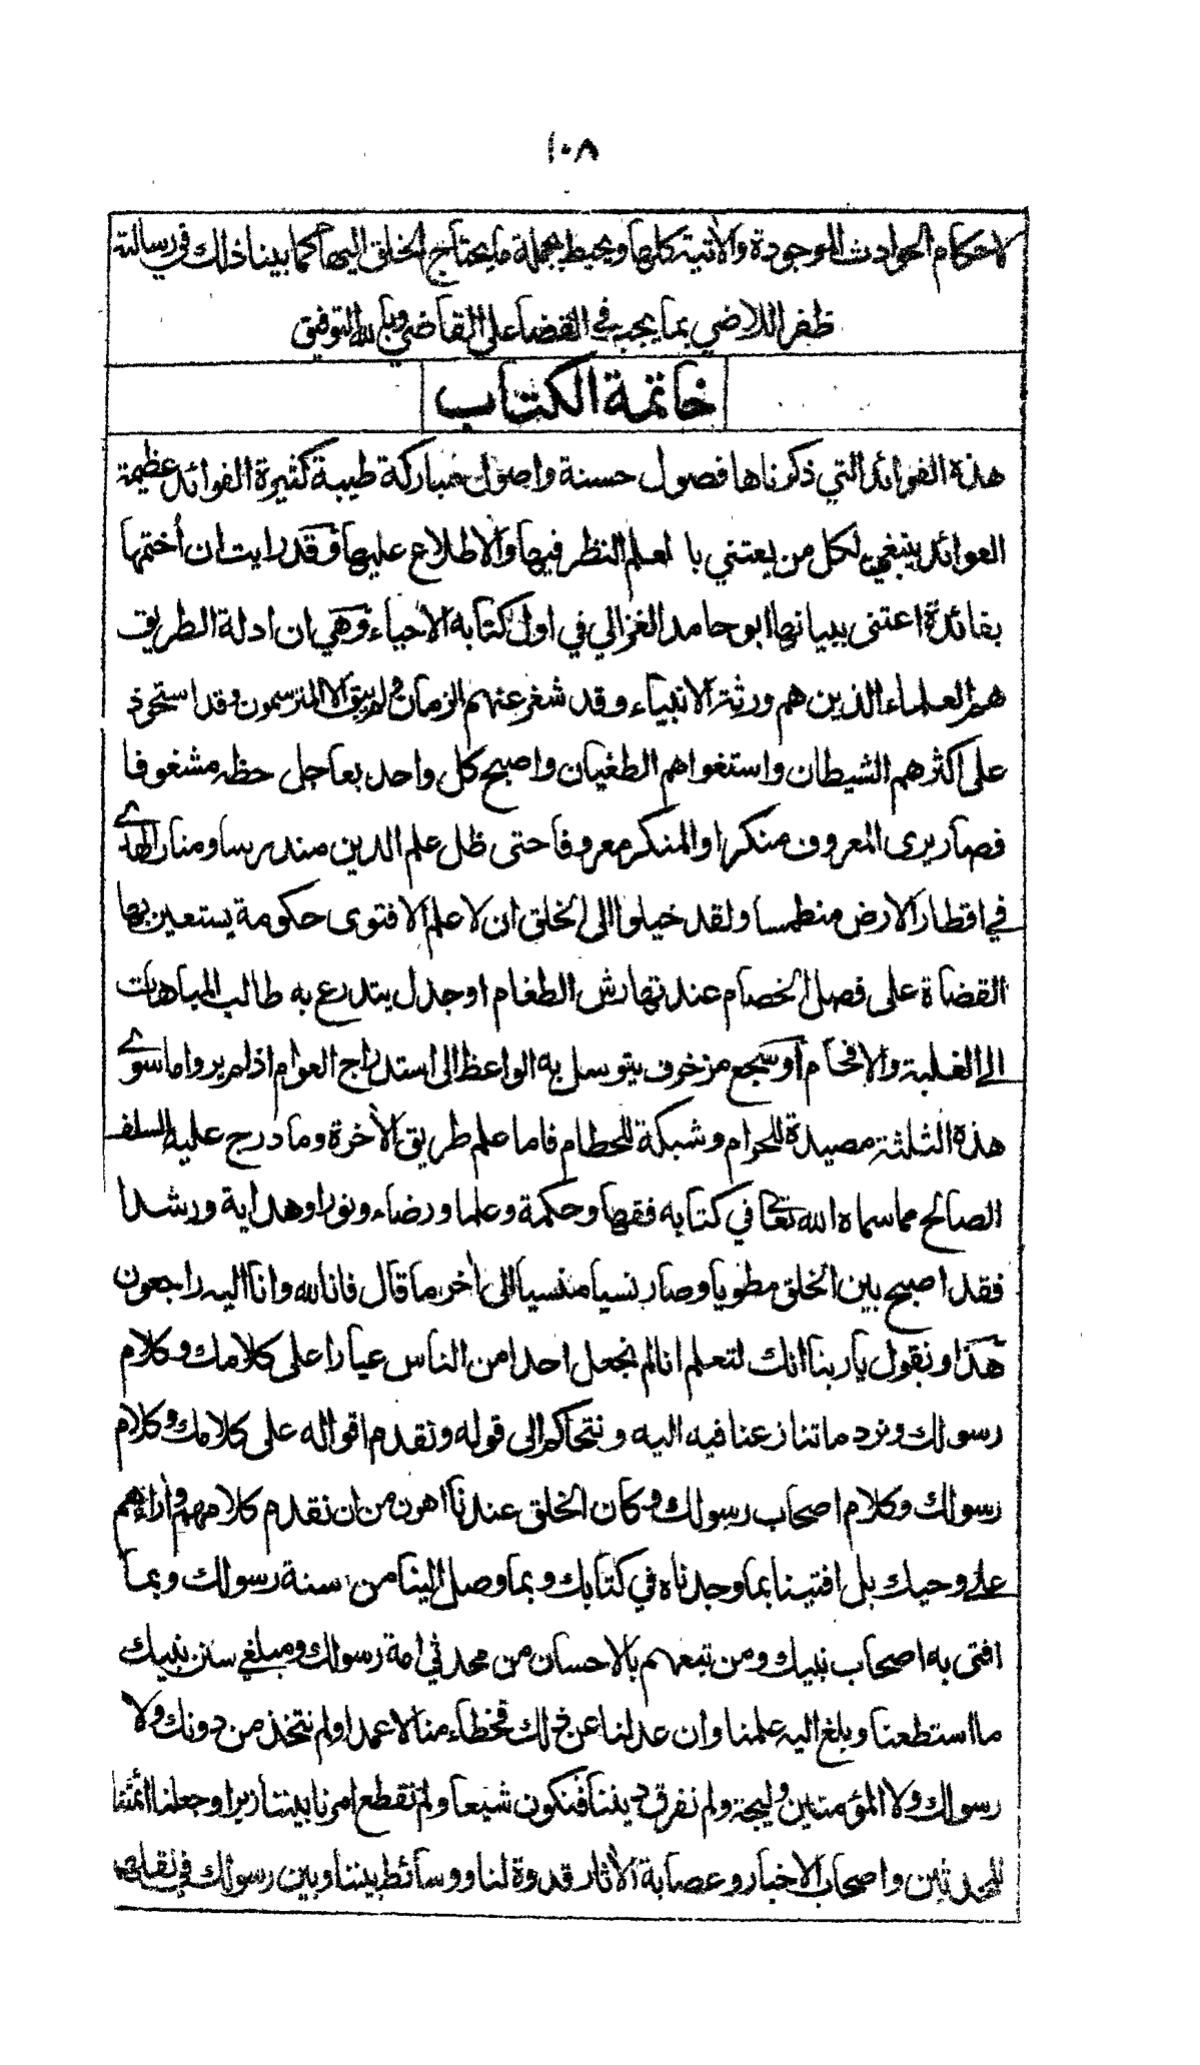 ١٠٨
لاحكام الحوادث الموجودة والآتية كلها ويحيط بجملة ما يحتاج الخلق اليها كما بينا ذلك في رسالته
ظفر اللاضي بما يجب في القضا على القاضي وبالله التوفيق
خاتمة الكتاب
هذة الفوائد التي ذكرناها فصول حسنة واصول مباركة طيبة كثيرة الفوائد عظيمة
العوائد ينبغي لكل من يعتني با لعلم النظر فيها والاطلاع عليها وقد رايت ان أختمها
بفائدة اعتنى ببيانها ابو حامد الغزالي في اول كتابه الاحياء وهي ان ادلة الطريق
هم العلماء الذين هم ورثة الانبياء وقد شغر عنهم الزمان ولم يبق الا المترسمون وقد استحوذ
على اكثرهم الشيطان واستغواهم الطغيان واصبح كل واحد بعاجل حظه مشغوفا
فصار يرى المعروف منكرا والمنكر معروفا حتى ظل علم الدين مندرسا ومنار الهدى
في اقطار الارض منطمسا ولقد خيلوا الى الخلق ان لا علم الا فتوى حكومة يستعين بها
القضاة على فصل الخصام عند تهارش الطغام او جدل يتدرع به طالب المباهات
الى الغلبة والافحام او سجع مزخرف يتوسل به الواعظ الى استدراج العوام اذ لم يروا ما سوى
هذه الثلثة مصيدة للحرام وشبكة للحطام فاما علم طريق الآخرة وما درج عليه السلف
الصالح مما سماه الله تعالى في كتابه فقها وحكمة وعلما ورضاء ونورا وهداية ورشدا
فقد اصبح بين الخلق مطويا وصار نسيا منسيا الى آخر ما قال فانا لله وانا اليه راجعون
هذا ونقول يا ربنا انك لتعلم انا لم نجعل احدا من الناس عيارا على كلامك وكلام
رسولك ونرد ما تنازعنا فيه اليه ونتحاكم الى قوله ونقدم اقواله على كلامك وكلام
رسولك وكلام اصحاب رسولك وكان الخلق عندنا اهون من ان نقدم كلامهم وآراءهم
على وحيك بل افتينا بما وجدناه في كتابك وبما وصل الينا من سنة رسولك وبما
افتى به اصحاب نبيك ومن تبعهم بالاحسان من محدثي امة رسولك ومبلغي سنن نبيك
ما استطعنا وبلغ اليه علمنا وان عدلنا عن ذلك فخطاء منا لا عمدا ولم نتخذ من دونك ولا
رسولك ولا المؤمنين وليجة ولم نفرق ديننا فنكون شيعا ولم نقطع امرنا بيننا زبرا وجعلنا ائمتنا
المحدثين واصحاب الاخبار وعصابة الآثار قدوة لنا ووسائط بيننا وبين رسولك في نقلهم